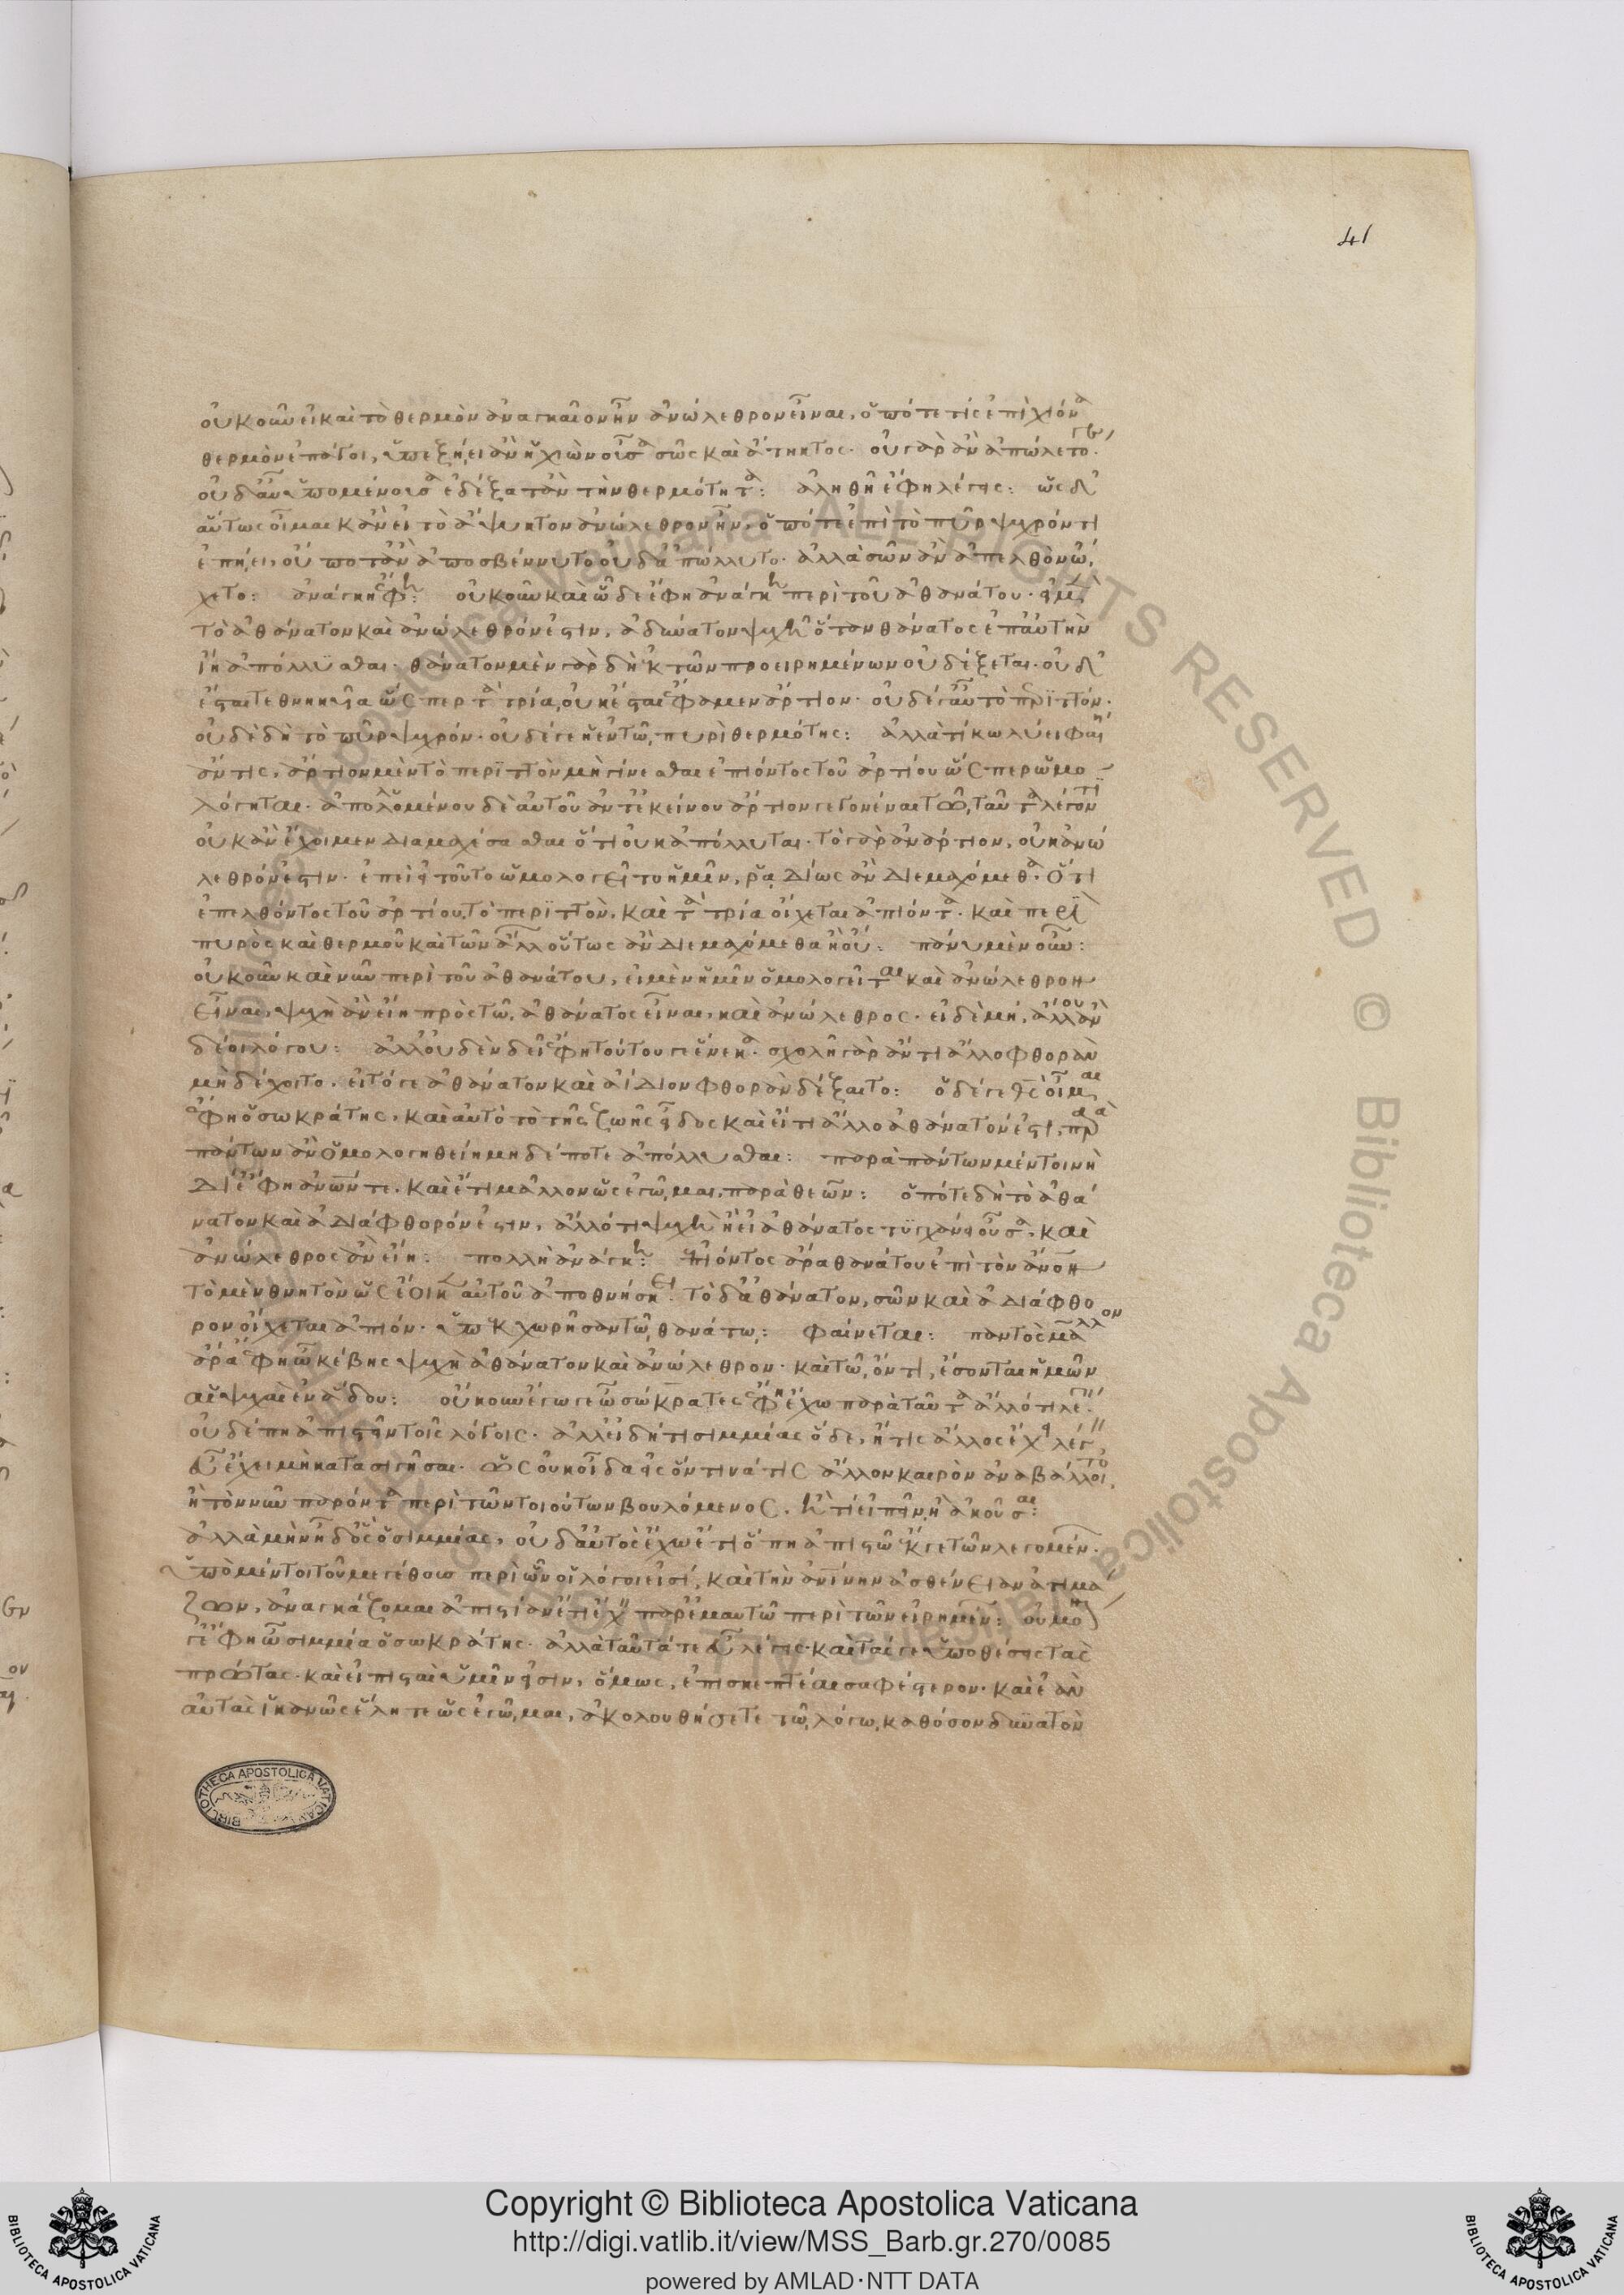 41
οὐκοῦν εἰ καὶ τὸ θερμὸν ἀναγκαῖον ἦν ἀνώλεθρον εἶναι, ὁπότε τίς ἐπὶ χιόνα
θερμὸν ἐπάγοι, ὑπεξῄει ἂν ἡ χιὼν οὖσα σῶς καὶ ἄτηκτος· οὐ γὰρ ἂν ἀπώλετό γε·
οὐδ' αὖ ὑπομένουσα ἐδέξατ' ἂν τὴν θερμότητα: ἀληθῆ ἔφη λέγεις: ὡς δ'
αὕτως οἶμαι κἂν εἰ τὸ ἄψυκτον ἀνώλεθρον ἦν, ὁπότε ἐπὶ τὸ πῦρ ψυχρόν τι
ἐπῄει, οὔποτ' ἂν ἀπεσβέννυτο οὐδ' ἀπώλλυτο· ἀλλὰ σῶν ἂν ἀπελθὸν ὤ
χετο: ἀνάγκη ἔφη: οὐκοῦν καὶ ὧδε ἔφη ἀνάγκη περὶ τοῦ ἀθανάτου· εἰ μὲν
τὸ ἀθάνατον καὶ ἀνώλεθρόν ἐστιν, ἀδύνατον ψυχῇ ὅταν θάνατος ἐπ' αὐτὴν
ἴῃ ἀπόλλυσθαι· θάνατον μὲν γὰρ δὴ ἐκ τῶν προειρημένων οὐ δέξεται· οὐδ'
ἔσται τεθνηκυῖα ὥσπερ τὰ τρία, οὐκ ἔσται ἔφαμεν ἄρτιον· οὐδέ γ' αὖ τὸ περιττόν·
οὐδὲ δὴ τὸ πῦρ ψυχρόν· οὐδέ γε ἡ ἐν τῷ πυρὶ θερμότης: ἀλλὰ τί κωλύει φαίη
ἄν τις, ἄρτιον μὲν τὸ περιττὸν μὴ γίνεσθαι ἐπιόντος τοῦ ἀρτίου ὥσπερ ὡμο
λόγηται· ἀπολομένου δὲ αὐτοῦ ἀντ' ἐκείνου ἄρτιον γεγονέναι τῷ ταῦτα λέγοντι
οὐκ ἂν ἔχοιμεν διαμαχέσασθαι ὅτι οὐκ ἀπόλλυται· τὸ γὰρ ἀνάρτιον, οὐκ ἀνώ
λεθρόν ἐστιν· ἐπεὶ εἰ τοῦτο ὡμολογεῖτο ἡμῖν, ῥᾳδίως ἂν διεμαχόμεθα· ὅτι
ἐπελθόντος τοῦ ἀρτίου, τὸ περιττὸν, καὶ τὰ τρία οἴχεται ἀπιόντα· καὶ περὶ
πυρὸς καὶ θερμοῦ καὶ τῶν ἄλλων οὕτως ἂν διεμαχόμεθα ἢ οὔ: πάνυ μὲν οὖν:
οὐκοῦν καὶ νῦν περὶ τοῦ ἀθανάτου, εἰ μὲν ἡμῖν ὁμολογεῖται καὶ ἀνώλεθρον
εἶναι, ψυχὴ ἂν εἴη πρὸς τῷ ἀθάνατος εἶναι, καὶ ἀνώλεθρος· εἰ δὲ μή, ἄλλου ἂν
δέοι λόγου: ἀλλ' οὐδὲν δεῖ ἔφη τούτου γε ἕνεκα· σχολῇ γὰρ ἄν τι ἄλλο φθορὰν
μὴ δέχοιτο· εἰ τό γε ἀθάνατον καὶ ἀΐδιον φθορὰν δέξαιτο: ὁ δέ γε θεὸς οἶμαι
ἔφη ὁ σωκράτης, καὶ αὐτὸ τὸ τῆς ζωῆς εἶδος καὶ εἴ τι ἄλλο ἀθάνατόν ἐστι, παρὰ
πάντων ἂν ὁμολογηθείη μηδέποτε ἀπόλλυσθαι: παρὰ πάντων μέντοι νὴ
δί' ἔφη ἀνθρώπων τε· καὶ ἔτι μᾶλλον ὡς ἐγᾦμαι, παρὰ θεῶν: ὁπότε δὴ τὸ ἀθά
νατον καὶ ἀδιάφθορόν ἐστιν, ἄλλό τι ψυχὴ ἢ εἰ ἀθάνατος τυγχάνει οὖσα, καὶ
ἀνώλεθρος ἂν εἴη: πολλὴ ἀνάγκη: ἐπιόντος ἄρα θανάτου ἐπὶ τὸν ἄνθρωπον
τὸ μὲν θνητὸν ὡς ἔοικεν αὐτοῦ ἀποθνήσκει· τὸ δ' ἀθάνατον, σῶν καὶ ἀδιάφθο
ρον οἴχεται ἀπιόν· ὑπεκχωρῆσαν τῷ θανάτῳ: φαίνεται: παντὸς μᾶλλον
ἄρα ἔφη ὦ κέβης ψυχὴ ἀθάνατον καὶ ἀνώλεθρον· καὶ τῷ ὄντι, ἔσονται ἡμῶν
αἱ ψυχαὶ ἐν ἅδου: οὔκουν ἔγωγε ὦ σώκρατες ἔφη ἔχω παρὰ ταῦτα ἄλλό τι λέγειν
οὐδέ πῃ ἀπιστεῖν τοῖς λόγοις· ἀλλ' εἰ δή τι σιμμίας ὅδε, ἤ τις ἄλλος ἔχει λέγειν,
εὖ ἔχει μὴ κατασιγῆσαι· ὡς οὐκ οἶδα εἰς ὅντινά τις ἄλλον καιρὸν ἀναβάλλοιτο
ἢ τὸν νῦν παρόντα περὶ τῶν τοιούτων βουλόμενος, ἤ τι εἰπεῖν, ἢ ἀκοῦσαι:
ἀλλὰ μὴν ἦ δ' ὃς ὁ σιμμίας, οὐδ' αὐτὸς ἔχω ἔτι ὅπῃ ἀπιστῶ ἔκ γε τῶν λεγομένων·
ὑπὸ μέντοι τοῦ μεγέθους περὶ ὧν οἱ λόγοι εἰσί, καὶ τὴν ἀνθρωπίνην ἀσθένειαν ἀτιμά
ζων, ἀναγκάζομαι ἀπιστίαν ἔτι ἔχειν παρ' ἐμαυτῷ περὶ τῶν εἰρημένων: οὐ μόνον
γ' ἔφη ὦ σιμμία ὁ σωκράτης· ἀλλὰ ταῦτά τε εὖ λέγεις· καὶ τάς γε ὑποθέσεις τὰς
πρώτας· καὶ εἰ πισταὶ ὑμῖν εἰσιν, ὅμως, ἐπισκεπτέαι σαφέστερον· καὶ ἐὰν
αὐτὰς ἱκανῶς ἕλητε ὡς ἐγᾦμαι, ἀκολουθήσετε τῷ λόγῳ, καθόσον δυνατὸν
BIBLIOTHECA APOSTOLICA VATICANA
Copyright © Biblioteca Apostolica Vaticana
http://digi.vatlib.it/view/MSS_Barb.gr.270/0085
powered by AMLAD·NTT DATA